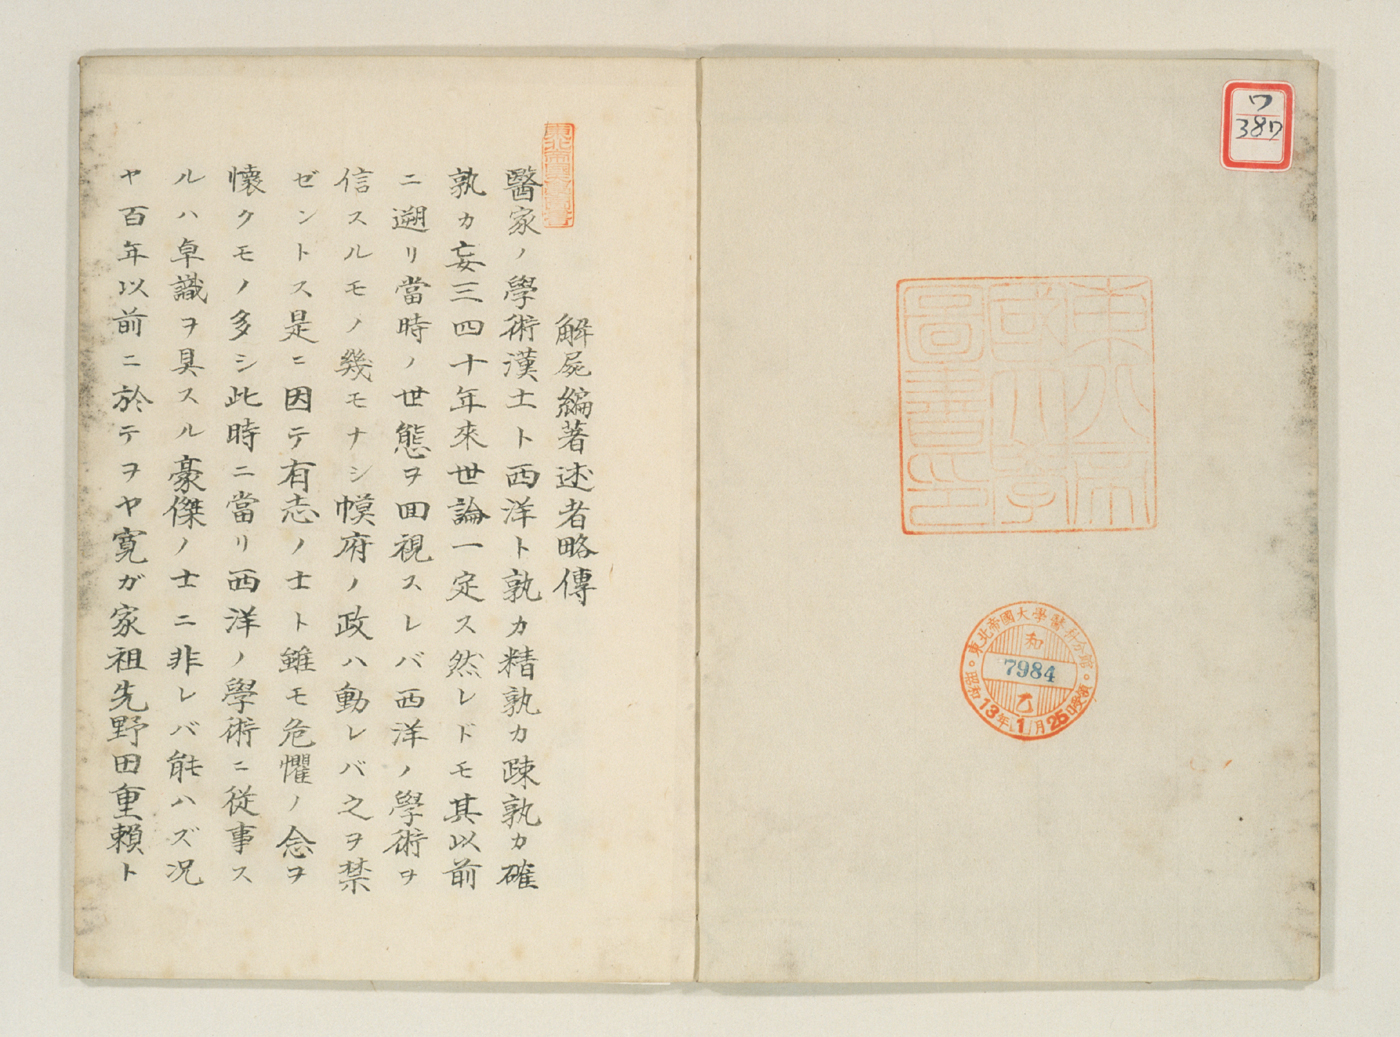 ワ
387
東北帝
國大學
圖書印
東北帝國大學醫科分館
和
7984
乙
昭和13年1月25日受領
解屍編著述者略傳
醫家ノ學術漢土ト西洋ト孰カ精孰カ疎孰カ確
孰カ妄三四十年來世論一定ス然レドモ其以前
ニ遡リ當時ノ世態ヲ回視スレバ西洋ノ學術ヲ
信スルモノ幾モナシ幙府ノ政ハ動レバ之ヲ禁
ゼントス是ニ因テ有志ノ士ト雖モ危懼ノ念ヲ
懐クモノ多シ此時ニ當リ西洋ノ學術ニ従事ス
ルハ卓識ヲ具スル豪傑ノ士ニ非レバ能ハズ况
ヤ百年以前ニ於テヲヤ寛ガ家祖先野田重頼ト